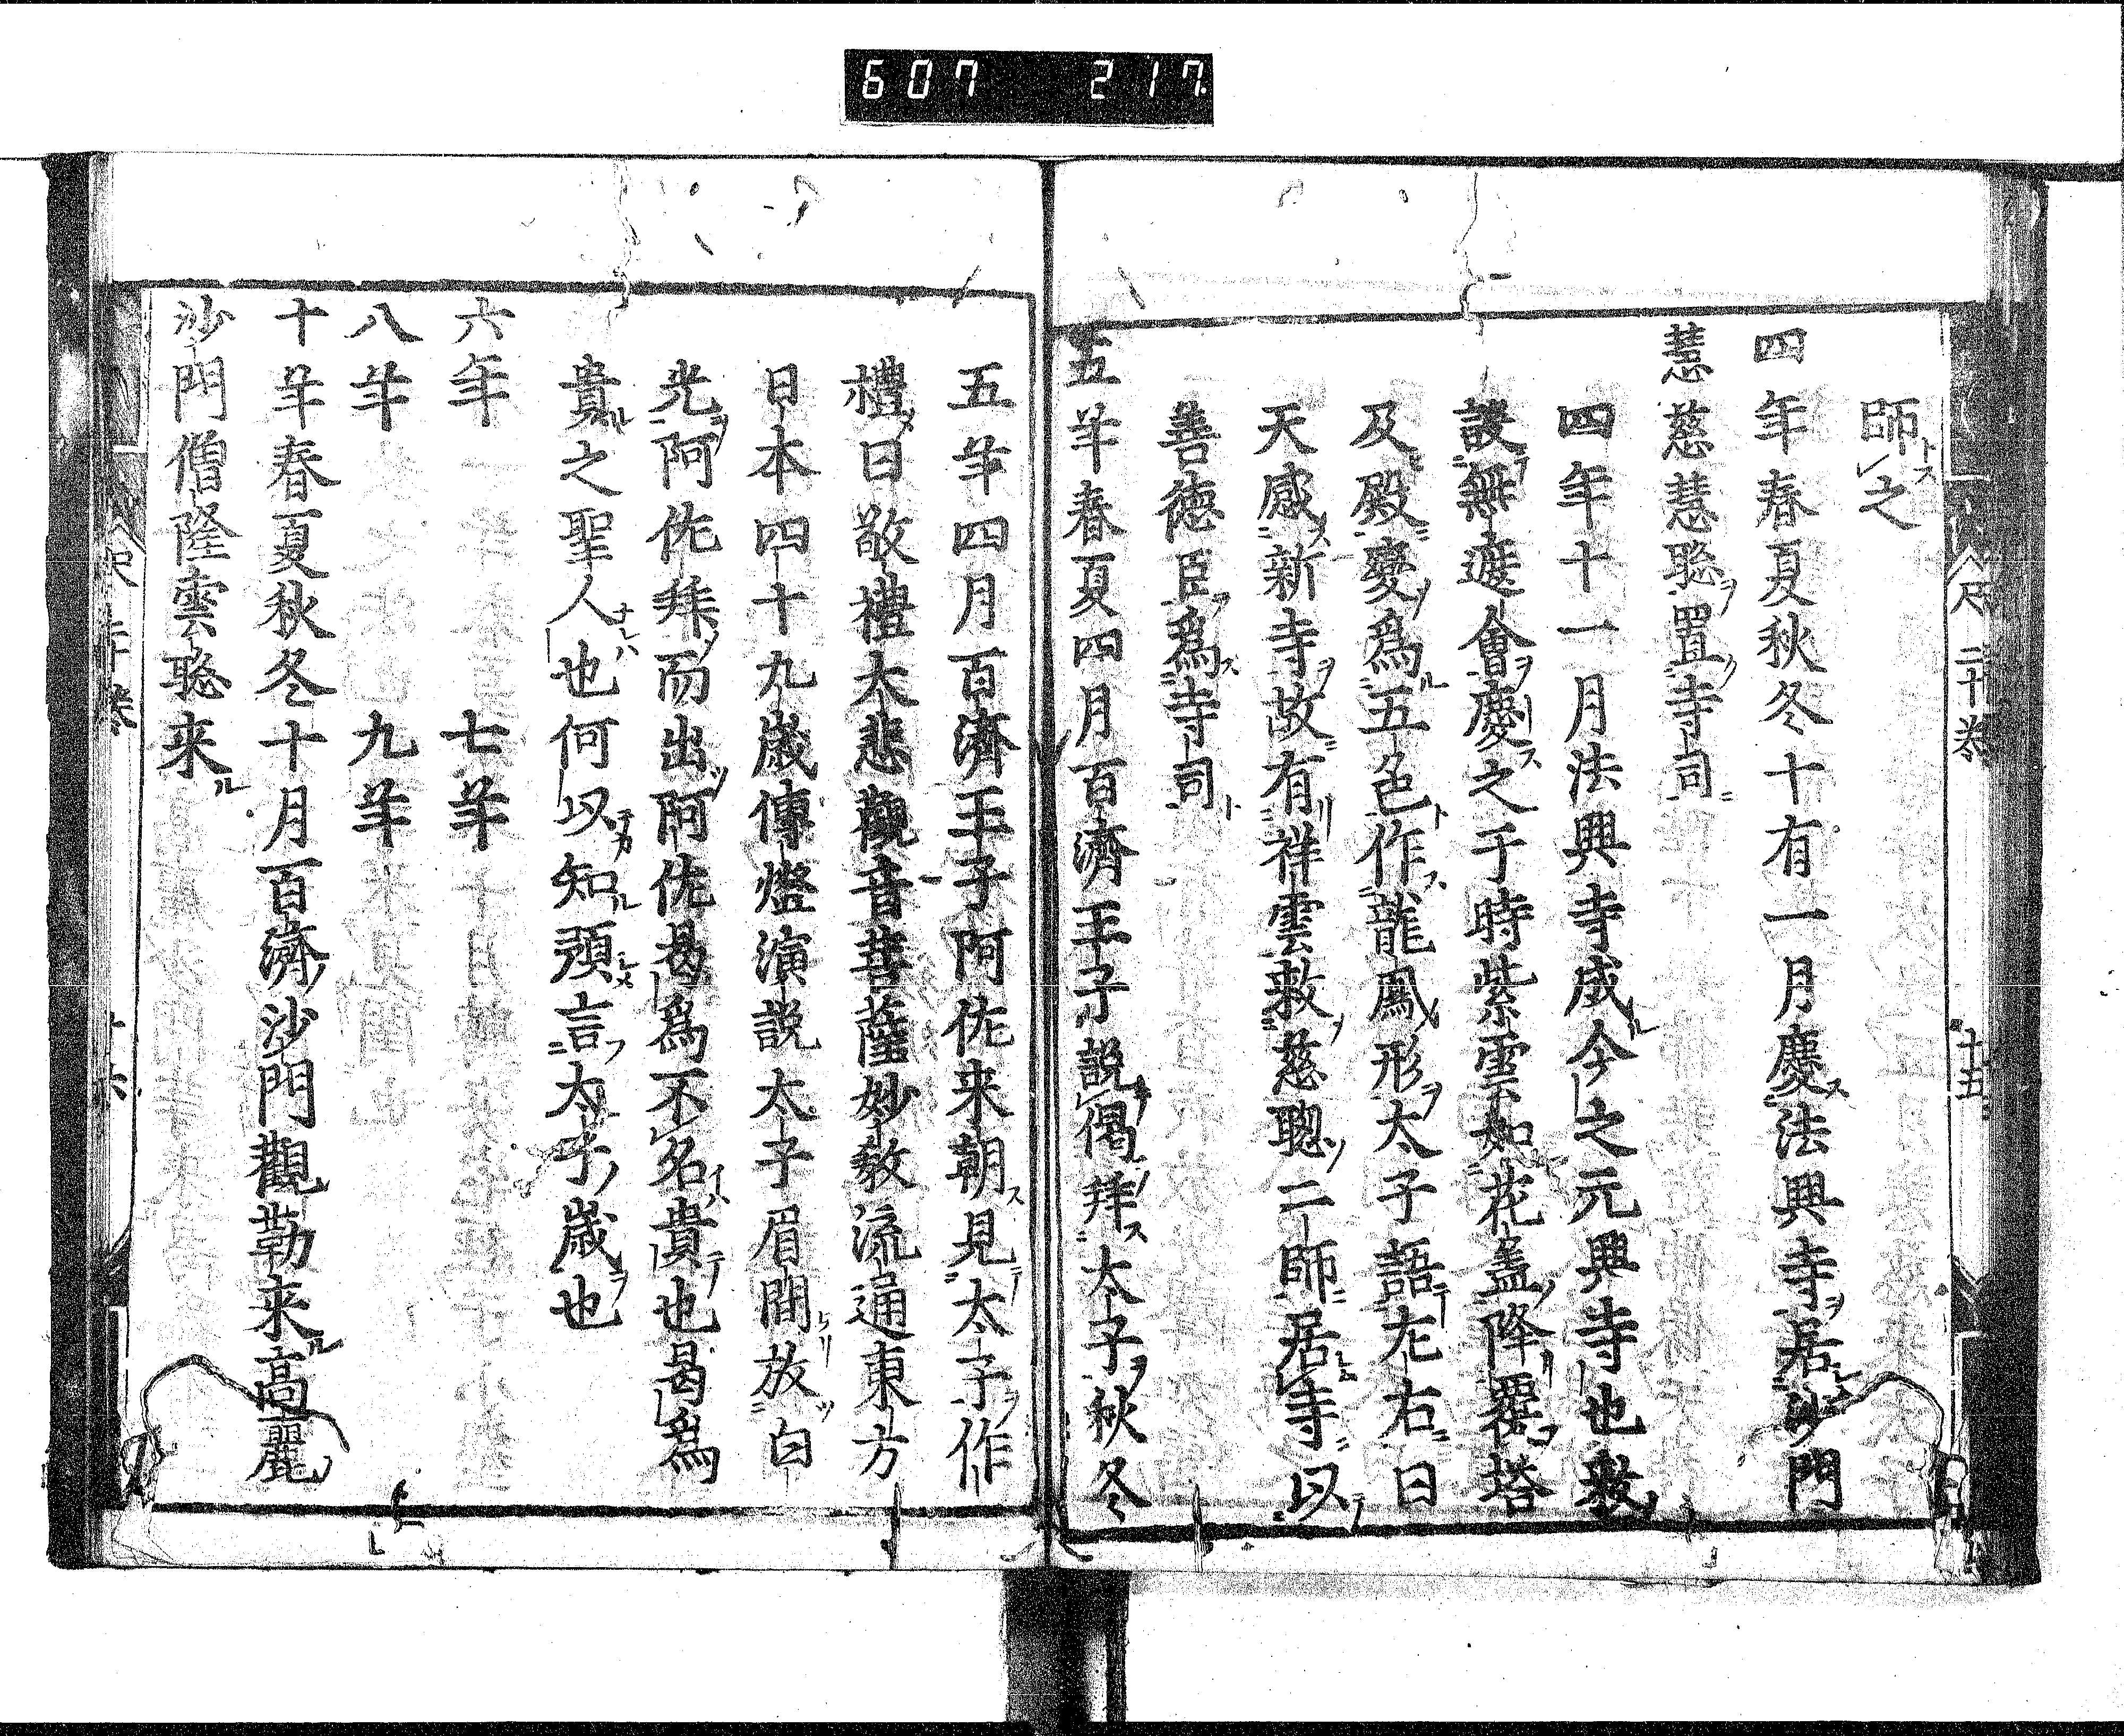 607 217
師之
四年春夏秋冬十有一月慶法興寺居沙門
慧慈慧聡置寺司
四年十一月法興寺成今之元興寺也敕
設無遮會慶之于時紫雲如花蓋降覆塔
及殿變爲五色作龍鳳形太子語左右曰
天感新寺故有祥雲敕慈聰二師居寺以
善徳臣爲寺司
五年春夏四月百濟王子説偈拜太子秋冬
五年四月百濟王子阿佐来朝見太子作
禮曰敬禮大悲觀音菩薩妙教流通東方
日本四十九歳傳燈演説太子眉間放白
光阿佐拜而出阿佐曷爲不名貴也曷爲
貴之聖人也何以知預言太子歳也
六年 七年
八年 九年
十年春夏秋冬十月百濟沙門觀勒来高麗
沙門僧隆雲聡来
二十巻 十五